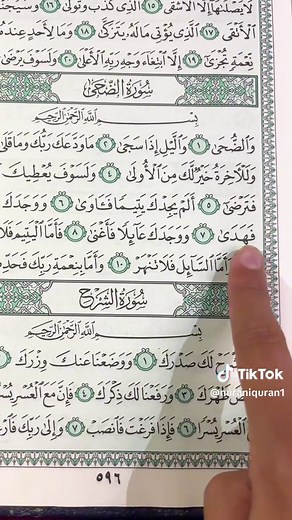 يَصْلَىٰهَآ إِلَّا ٱلْأَشْقَى ١٥ ٱلَّذِى كَذَّبَ وَتَوَلَّىٰ ١٦
ٱلْأَتْقَى ١٧ ٱلَّذِى يُؤْتِى مَالَهُۥ يَتَزَكَّىٰ ١٨ وَمَا لِأَحَدٍ عِندَهُۥ
نِّعْمَةٍ تُجْزَىٰٓ ١٩ إِلَّا ٱبْتِغَآءَ وَجْهِ رَبِّهِ ٱلْأَعْلَىٰ ٢٠ وَلَسَوْفَ يَرْضَىٰ
سُورَةُ الضُّحَىٰ
بِسْمِ ٱللَّهِ ٱلرَّحْمَٰنِ ٱلرَّحِيمِ
وَٱلضُّحَىٰ ١ وَٱلَّيْلِ إِذَا سَجَىٰ ٢ مَا وَدَّعَكَ رَبُّكَ وَمَا قَلَىٰ
وَلَلْـَٔاخِرَةُ خَيْرٌ لَّكَ مِنَ ٱلْأُولَىٰ ٤ وَلَسَوْفَ يُعْطِيكَ
فَتَرْضَىٰٓ ٥ أَلَمْ يَجِدْكَ يَتِيمًا فَـَٔاوَىٰ ٦ وَوَجَدَكَ
فَهَدَىٰ ٧ وَوَجَدَكَ عَآئِلًا فَأَغْنَىٰ ٨ فَأَمَّا ٱلْيَتِيمَ فَلَا
وَأَمَّا ٱلسَّآئِلَ فَلَا تَنْهَرْ ١٠ وَأَمَّا بِنِعْمَةِ رَبِّكَ فَحَدِّثْ
سُورَةُ الشَّرْحِ
بِسْمِ ٱللَّهِ ٱلرَّحْمَٰنِ ٱلرَّحِيمِ
لَكَ صَدْرَكَ ١ وَوَضَعْنَا عَنكَ وِزْرَكَ
ظَهْرَكَ ٣ وَرَفَعْنَا لَكَ ذِكْرَكَ ٤ فَإِنَّ مَعَ ٱلْعُسْرِ
ٱلْعُسْرِ يُسْرًا ٦ فَإِذَا فَرَغْتَ فَٱنصَبْ ٧ وَإِلَىٰ رَبِّكَ
٥٩٦
TikTok
@nuraniquran1